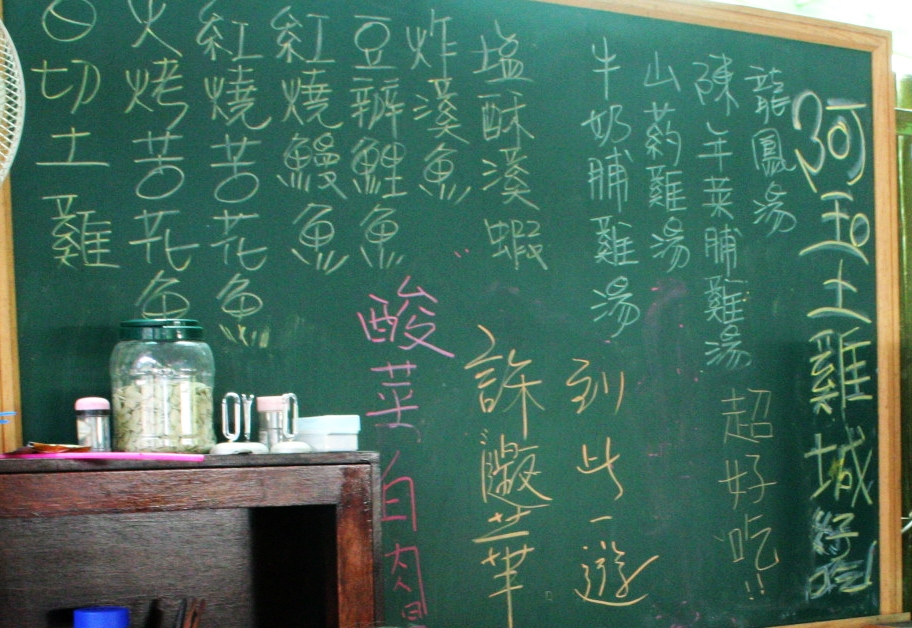 阿玉土雞城
好吃
龍鳳湯
陳年菜脯雞湯
超好吃!!
山葯雞湯
牛奶脯雞湯
到此一遊
塩酥溪蝦
許
華
炸溪魚
豆瓣鯉魚
酸菜白肉
紅燒鰻魚
紅燒苦花魚
火烤苦花魚
白切土雞